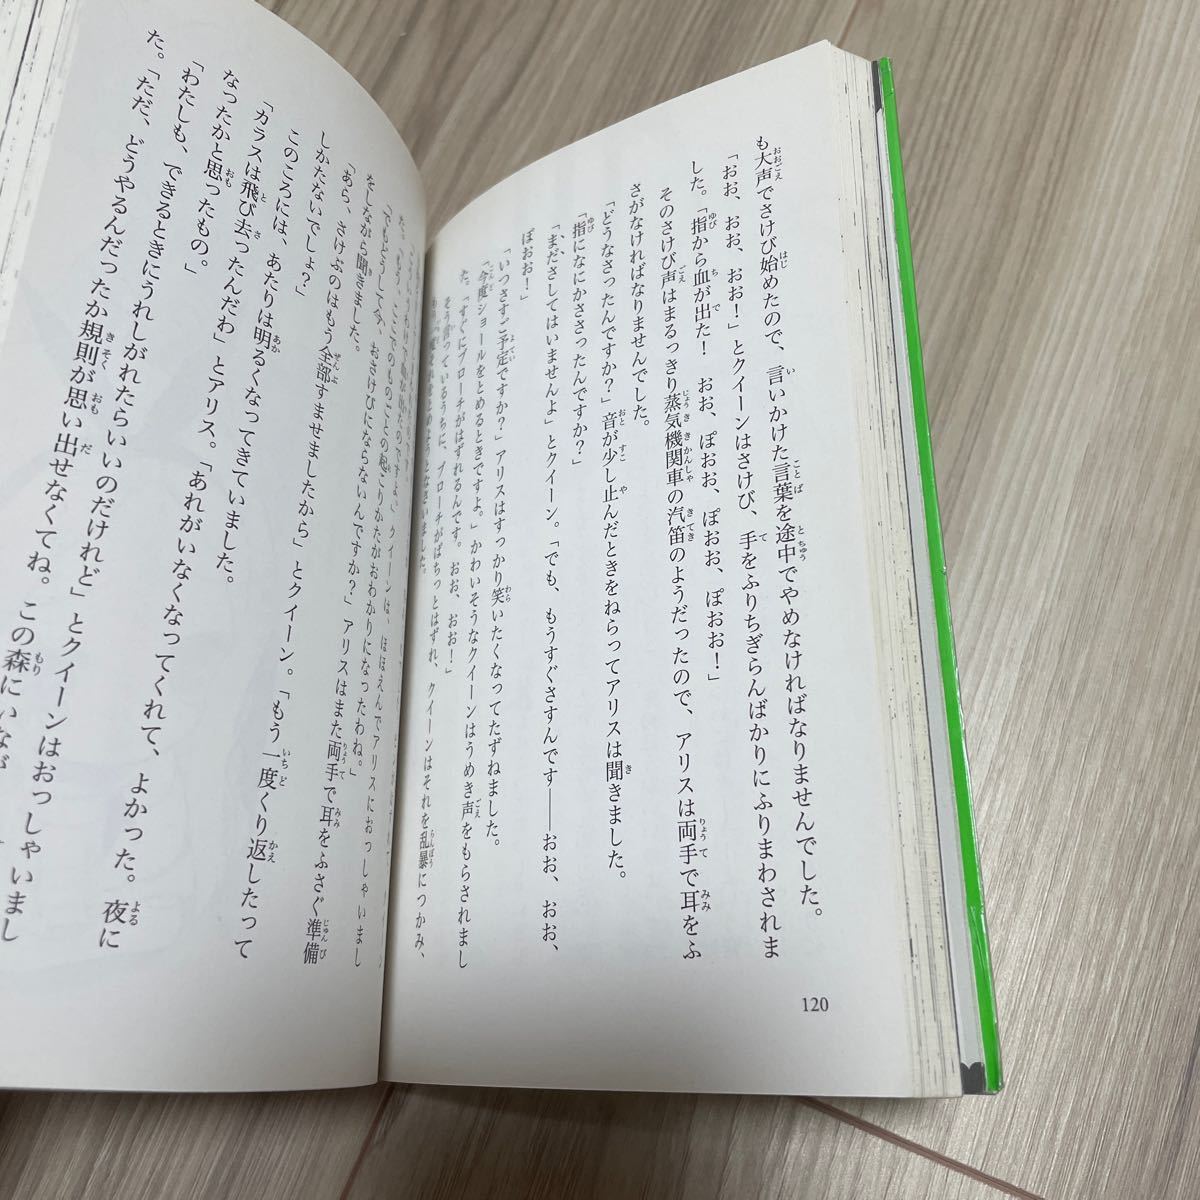 も大声でさけび始めたので、言いかけた言葉を途中でやめなければなりませんでした。
「おお、おお、おお！」とクイーンはさけび、手をふりちぎらんばかりにふりまわされま
した。「指から血が出た！　おお、ぽおお、ぽおお、ぽおお！」
そのさけび声はまるっきり蒸気機関車の汽笛のようだったので、アリスは両手で耳をふ
さがなければなりませんでした。
「どうなさったんですか？」音が少し止んだときをねらってアリスは聞きました。
「指になにかささったんですか？」
「まださしてはいませんよ」とクイーン。「でも、もうすぐさすんです──おお、おお、
ぽおお！」
「いつさすご予定ですか？」アリスはすっかり笑いたくなってたずねました。
「今度ショールをとめるときですよ。」かわいそうなクイーンはうめき声をもらされまし
た。「すぐにブローチがはずれるんです。おお、おお！」
そう言っているうちに、ブローチがぱちっとはずれ、クイーンはそれを乱暴につかみ、
120
クイーンは、ほほえんでアリスにおっしゃいまし
た。「もう、ここでのものごとの起こりかたがおわかりになったわね。」
「でもどうして今、おさけびにならないんですか？」アリスはまた両手で耳をふさぐ準備
をしながら聞きました。
「あら、さけぶのはもう全部すませましたから」とクイーン。「もう一度くり返したって
しかたないでしょ？」
このころには、あたりは明るくなってきていました。
「カラスは飛び去ったんだわ」とアリス。「あれがいなくなってくれて、よかった。夜に
なったかと思ったもの。」
「わたしも、できるときにうれしがれたらいいのだけれど」とクイーンはおっしゃいまし
た。「ただ、どうやるんだったか規則が思い出せなくてね。この森にいなが